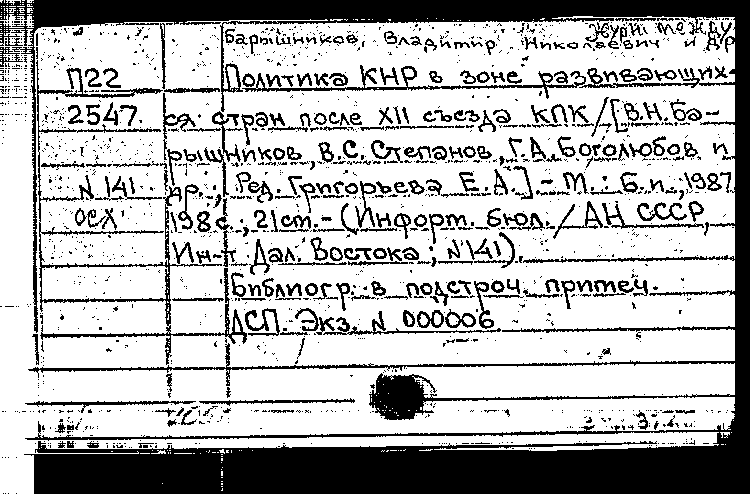 Журн. между
Барышников, Владимир Николаевич и др
П22 Политика КНР в зоне развивающих-
2547. ся стран после XII съезда КПК/[В.Н.Ба-
рышников, В.С. Степанов, Г.А. Боголюбов и
N 141 др.; Ред. Григорьева Е.А.].- М.: Б.и., 1987
ОСХ 198с.; 21 см.- (Информ. бюл. / АН СССР,
Ин-т Дал. Востока; N141).
Библиогр. в подстроч. примеч.
ДСП. Экз. N 000006